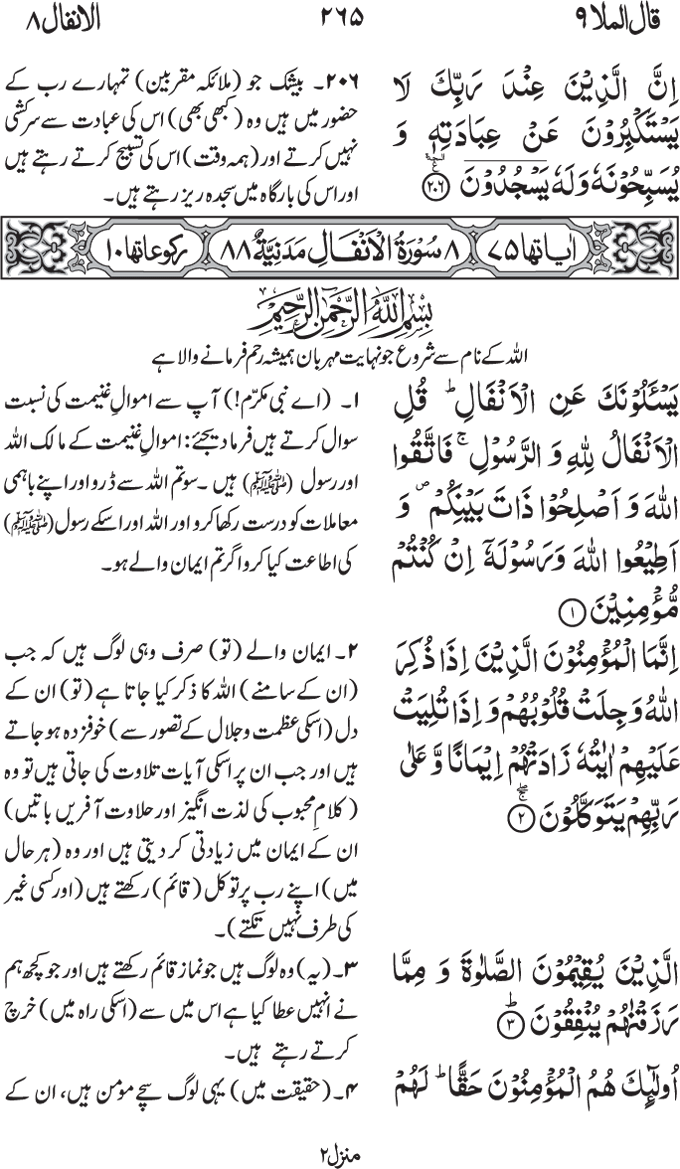 قال الملا ٩ ۲۶۵ الانفال ٨
اِنَّ الَّذِيْنَ عِنْدَ رَبِّكَ لَا
يَسْتَكْبِرُوْنَ عَنْ عِبَادَتِهٖ وَ
يُسَبِّحُوْنَهٗ وَلَهٗ يَسْجُدُوْنَ ﴿۲۰۶﴾
۲۰۶۔ بیشک جو (ملائکہ مقربین) تمہارے رب کے
حضور میں ہیں وہ (کبھی بھی) اس کی عبادت سے سرکشی
نہیں کرتے اور (ہمہ وقت) اس کی تسبیح کرتے رہتے ہیں
اور اس کی بارگاہ میں سجدہ ریز رہتے ہیں۔
اٰیاتها ۷۵ ۸ سُوْرَةُ الْاَنْفَالِ مَدَنِيَّةٌ ۸۸ رکوعاتها ۱۰
بِسْمِ اللّٰهِ الرَّحْمٰنِ الرَّحِيْمِ
اللہ کے نام سے شروع جو نہایت مہربان ہمیشہ رحم فرمانے والا ہے
يَسْـَٔلُوْنَكَ عَنِ الْاَنْفَالِ ؕ قُلِ
الْاَنْفَالُ لِلّٰهِ وَ الرَّسُوْلِ ۚ فَاتَّقُوا
اللّٰهَ وَ اَصْلِحُوْا ذَاتَ بَيْنِكُمْ ۪ وَ
اَطِيْعُوا اللّٰهَ وَرَسُوْلَهٗۤ اِنْ كُنْتُمْ
مُّؤْمِنِيْنَ ﴿۱﴾
۱۔ (اے نبی مکرّم!) آپ سے اموالِ غنیمت کی نسبت
سوال کرتے ہیں فرما دیجئے: اموالِ غنیمت کے مالک اللہ
اور رسول (ﷺ) ہیں ۔سو تم اللہ سے ڈرو اور اپنے باہمی
معاملات کو درست رکھا کرو اور اللہ اور اسکے رسول (ﷺ)
کی اطاعت کیا کرو اگر تم ایمان والے ہو۔
اِنَّمَا الْمُؤْمِنُوْنَ الَّذِيْنَ اِذَا ذُكِرَ
اللّٰهُ وَجِلَتْ قُلُوْبُهُمْ وَ اِذَا تُلِيَتْ
عَلَيْهِمْ اٰيٰتُهٗ زَادَتْهُمْ اِيْمَانًا وَّ عَلٰى
رَبِّهِمْ يَتَوَكَّلُوْنَ ﴿۲﴾
۲۔ ایمان والے (تو) صرف وہی لوگ ہیں کہ جب
(ان کے سامنے) اللہ کا ذکر کیا جاتا ہے (تو) ان کے
دل (اسکی عظمت و جلال کے تصور سے) خوفزدہ ہو جاتے
ہیں اور جب ان پر اسکی آیات تلاوت کی جاتی ہیں تو وہ
(کلامِ محبوب کی لذت انگیز اور حلاوت آفریں باتیں)
ان کے ایمان میں زیادتی کر دیتی ہیں اور وہ (ہر حال
میں) اپنے رب پر توکل (قائم) رکھتے ہیں (اور کسی غیر
کی طرف نہیں تکتے)۔
الَّذِيْنَ يُقِيْمُوْنَ الصَّلٰوةَ وَ مِمَّا
رَزَقْنٰهُمْ يُنْفِقُوْنَ ﴿۳﴾ؕ
۳۔ (یہ) وہ لوگ ہیں جو نماز قائم رکھتے ہیں اور جو کچھ ہم
نے انہیں عطا کیا ہے اس میں سے (اسکی راہ میں) خرچ
کرتے رہتے ہیں۔
اُولٰٓئِكَ هُمُ الْمُؤْمِنُوْنَ حَقًّا ؕ لَهُمْ
۴۔ (حقیقت میں) یہی لوگ سچے مومن ہیں، ان کے
منزل ۲